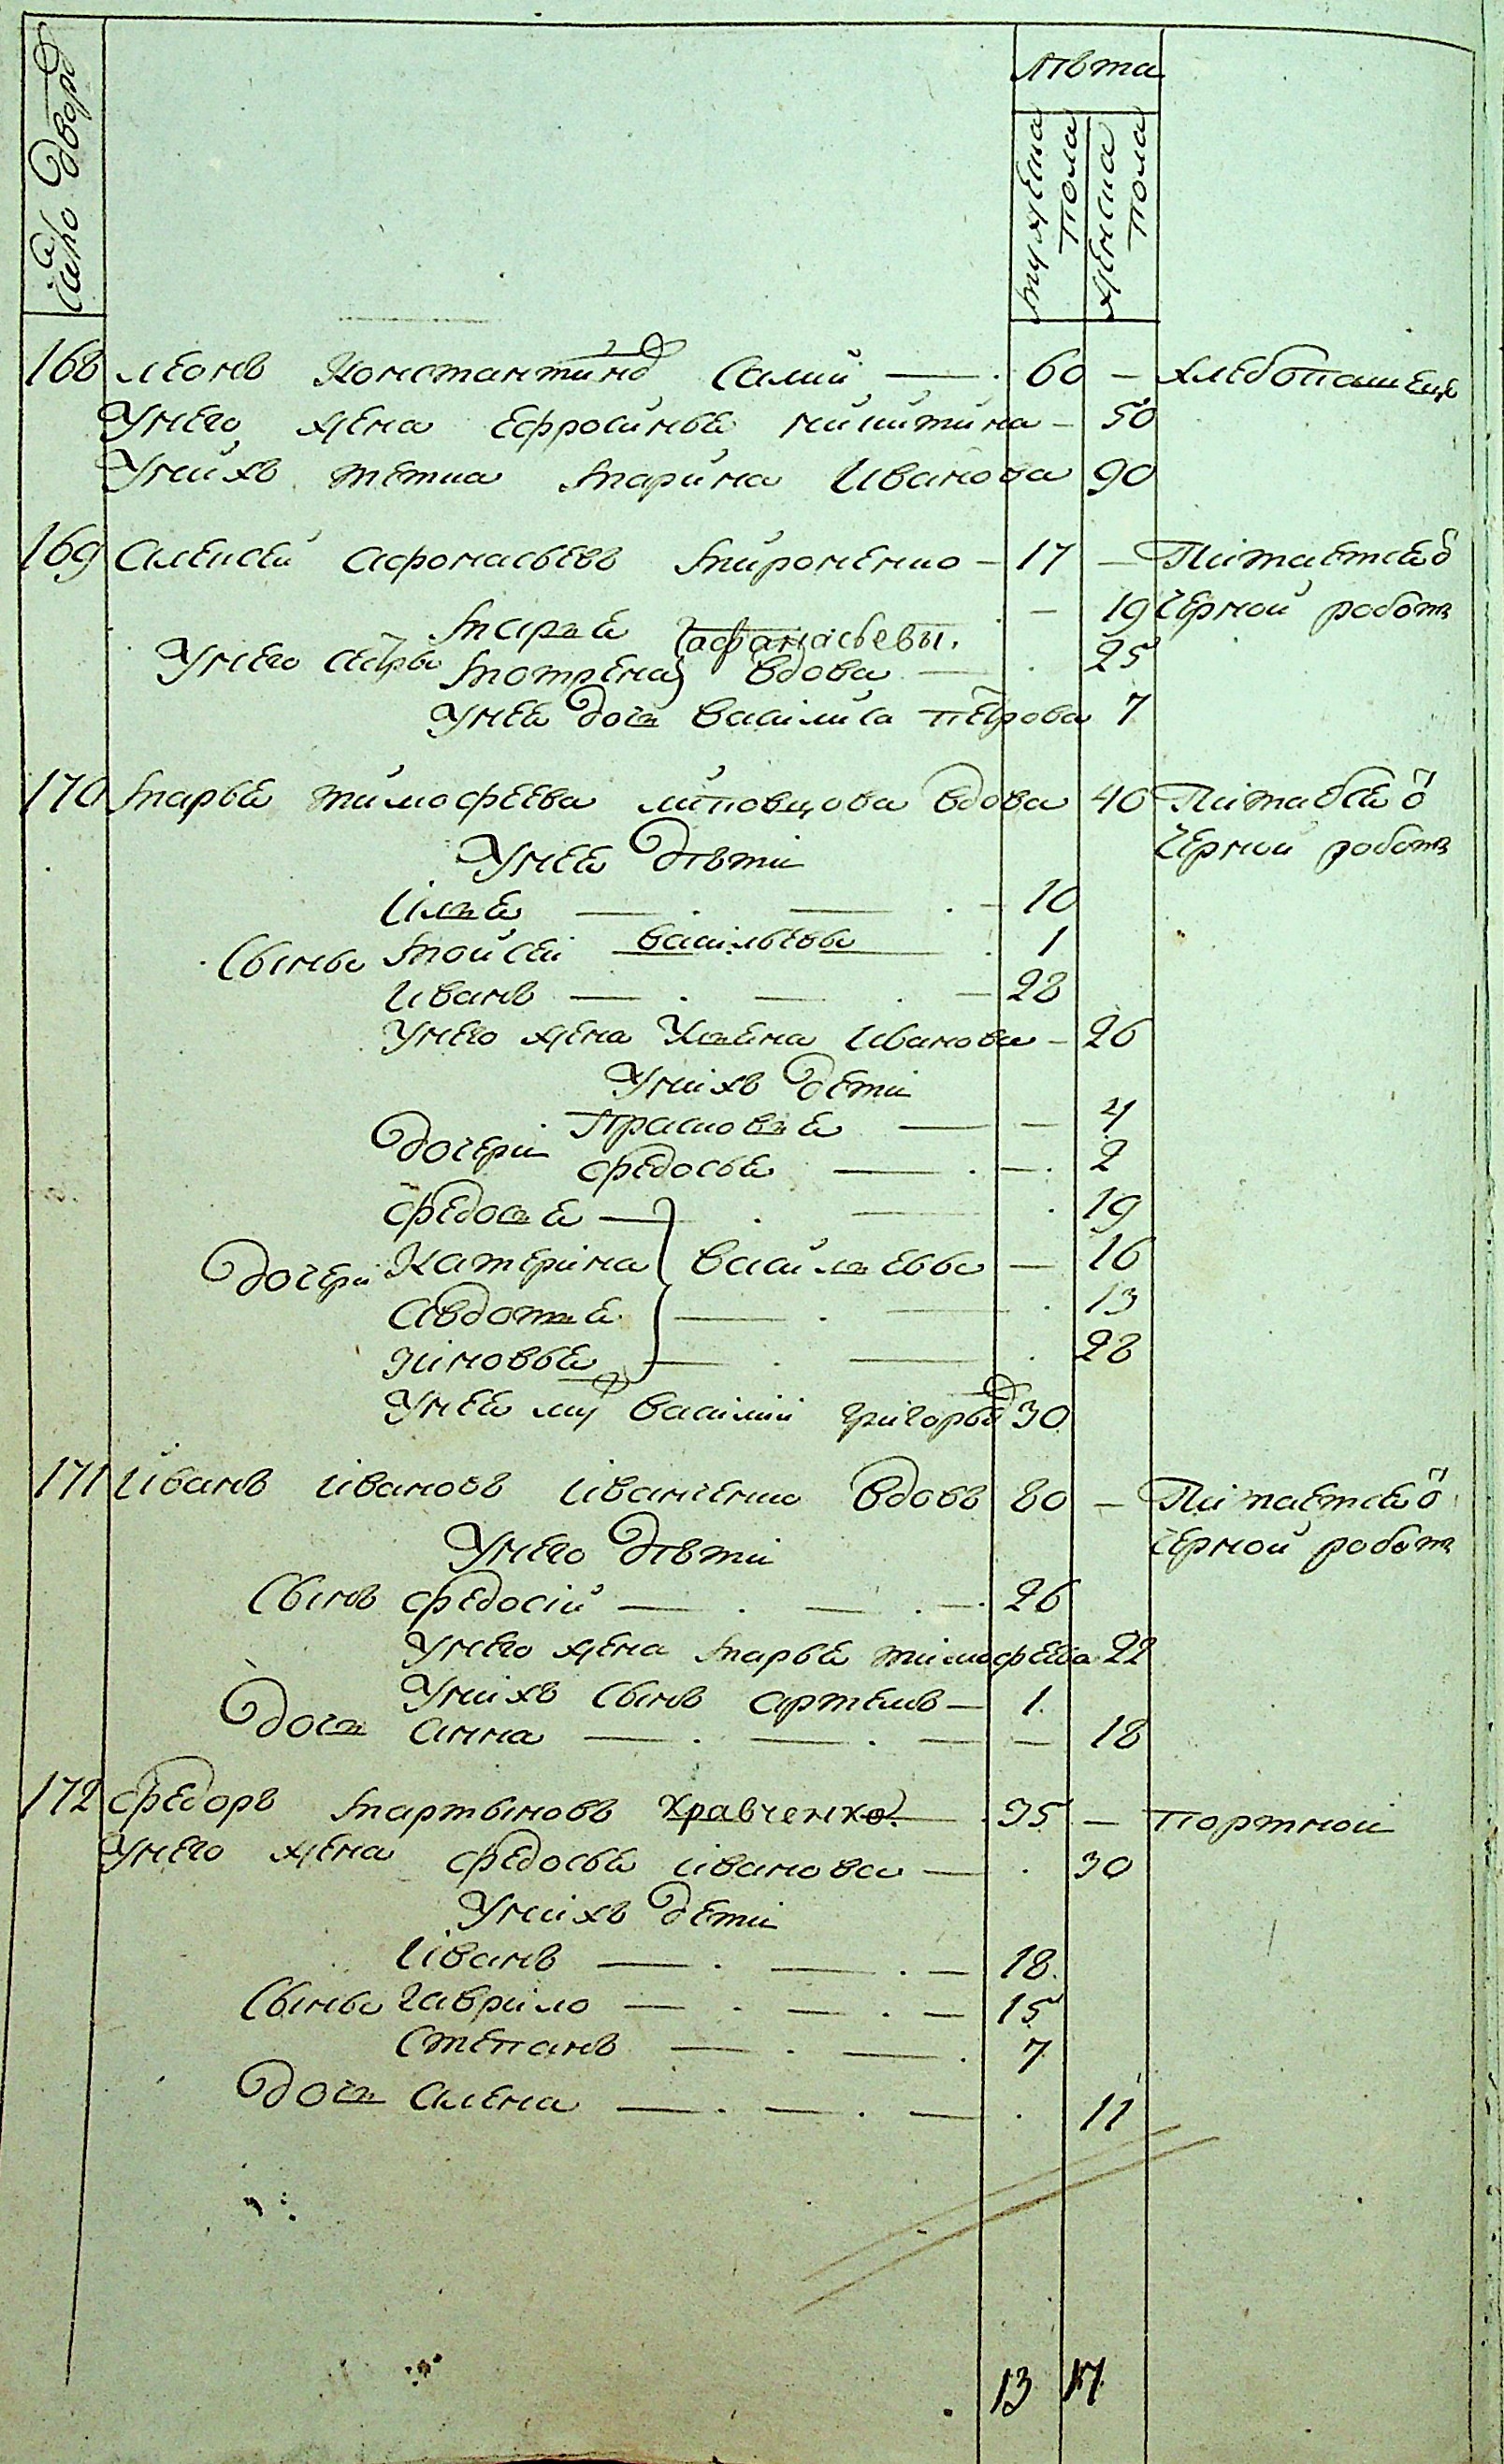 Число дворовъ
лѣта
мужеска пола
женска пола
168 леонъ константиновъ Салий — 60 — хлебопашецъ
Унего жена ефросинья никитина — 50
Унихъ тетка марина Иванова 90
169 алексей афонасьевъ мироненко — 17 — Питаетсея ѿ
черной работы
Унего сестры мария афанасьевы. — 19
мотрена вдова — 25
Унея дочь василиса петрова 7
170 марья тимофеева липовцова вдова 40 Питаеся ѿ
черной работы
Унея дѣти
илья — — 10
Сыны мойсей васильевы 1
Иванъ — — 28
Унего жена Ульяна Иванова — 26
Унихъ дети
дочери Прасковья — — 4
федосья — — 2
федосья — — 19
дочери Катерина васильевы — 16
авдотья — — 13
зиновья — — 28
Унея муж василий григорьевъ 30
171 Иванъ Ивановъ Иванченко вдовъ 80 — Питаетсея ѿ
черной работы
Унего дѣти
Сынъ федосій — — 26
Унего жена марья тимофеева 22
Унихъ сынъ артемъ — 1
дочь анна — — — 18
172 федоръ мартыновъ Кравченко — 35 — портной
Унего жена федосья иванова — 30
Унихъ дети
Иванъ — — 18
Сыны гаврило — — 15
степанъ — — 7
дочь алена — — — 11
13 17